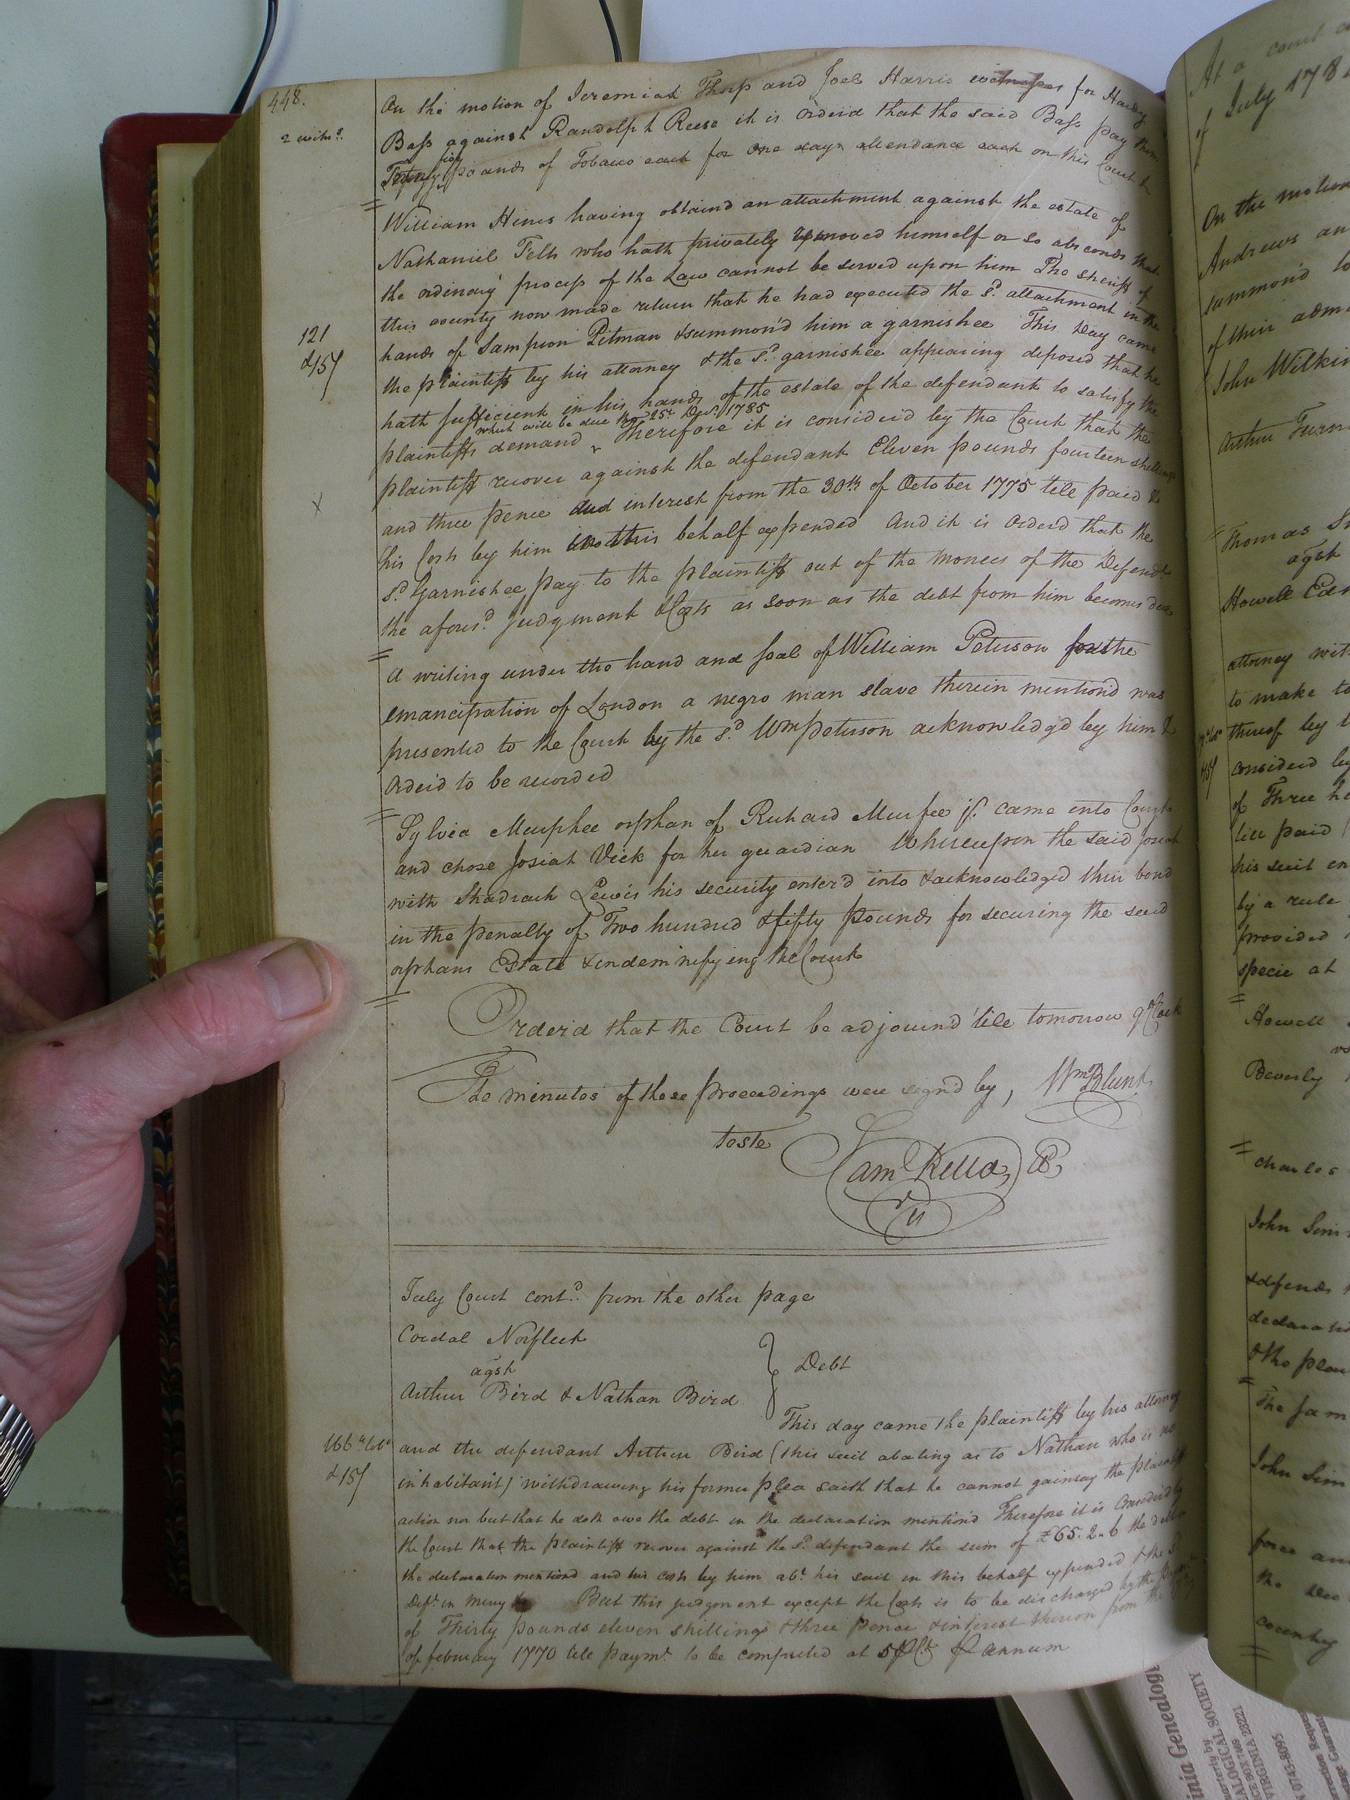 448.
2 witns.
On the motion of Jeremiah Thorp and Joel Harris witnesses for Hardy
Bass against Randolph Reese it is Orderd that the said Bass pay them
Twenty five pounds of Tobacco each for One days attendance each on this Court
William Hines having obtaind an attachment against the estate of
Nathaniel Felts who hath privately removed himself or so absconds that
the ordinary process of the Law cannot be served upon him The sheriff of
this county now made return that he had executed the sd. attachment in the
121
&15/
hands of Sampson Pitman & summon'd him a garnishee This Day came
the plaintiff by his attorney & the sd. garnishee appearing deposed that he
hath sufficient in his hands of the estate of the defendant to satisfy the
which will be due the 25th Decr. 1785
plaintiffs demand Therefore it is considerd by the Court that the
plaintiff recover against the defendant Eleven pounds fourteen shillings
and three pence and interest from the 30th of October 1775 till paid &
X
his Costs by him in this behalf expended And it is Orderd that the
sd. Garnishee pay to the plaintiff out of the monies of the Defendt.
the aforesd. judgment & Costs as soon as the debt from him becomes due
A writing under the hand and seal of William Peterson for the
emancipation of London a negro man slave therein mention'd was
presented to the Court by the sd. Wm Peterson acknowledg'd by him &
Order'd to be recorded
Sylvia Murphee orphan of Richard Murfee came into Court
and chose Josiah Vick for her guardian Whereupon the said Josiah
with Shadrach Lewis his security enter'd into & acknowledged their bond
in the penalty of Two hundred & fifty pounds for securing the said
orphans Estate & indemnifying the Court
Order'd that the Court be adjournd 'till tomorrow 9 oClock
The minutes of these proceedings were sign'd by, Wm Blunt
teste
Sam Kello, CC
July Court contd. from the other page
Cordal Norfleet
agst
Arthur Bird & Nathan Bird
Debt
This day came the plaintiff by his attorney
166 lb to
&15/
and the defendant Arthur Bird (this suit abating as to Nathan who is no
inhabitant) withdrawing his former plea saith that he cannot gainsay the plaintiffs
action nor but that he doth owe the debt in the declaration mention'd Therefore it is Considerd by
the Court that the plaintiff recover against the sd. defendant the sum of £65.2.6 the debt in
the declaration mentiond and his costs by him abt. his suit in this behalf expended & the sd.
Deft. in mercy &c But this judgment except the Costs is to be discharged by the payment
of Thirty pounds eleven shillings & three pence & interest thereon from the
of february 1770 till paymt. to be computed at 5 P Ct. P annum
At a court
of July 178
On the motion
Andrews an
summond to
of their
John Wilkin
Arthur Turn
Thomas
agst
Howell
attorney with
to make to
thereof by
considerd by
of Three
till paid
his suit in
by a rule
provided
specie at
Howell
vs
Beverly
Charles
John Sim
& defends
declarati
& the plain
The sam
John Sim
force an
the
county
inia Genealogi
arterly by
ALOGICAL SOCIETY
VIRGINIA 23221
N 0743-8095